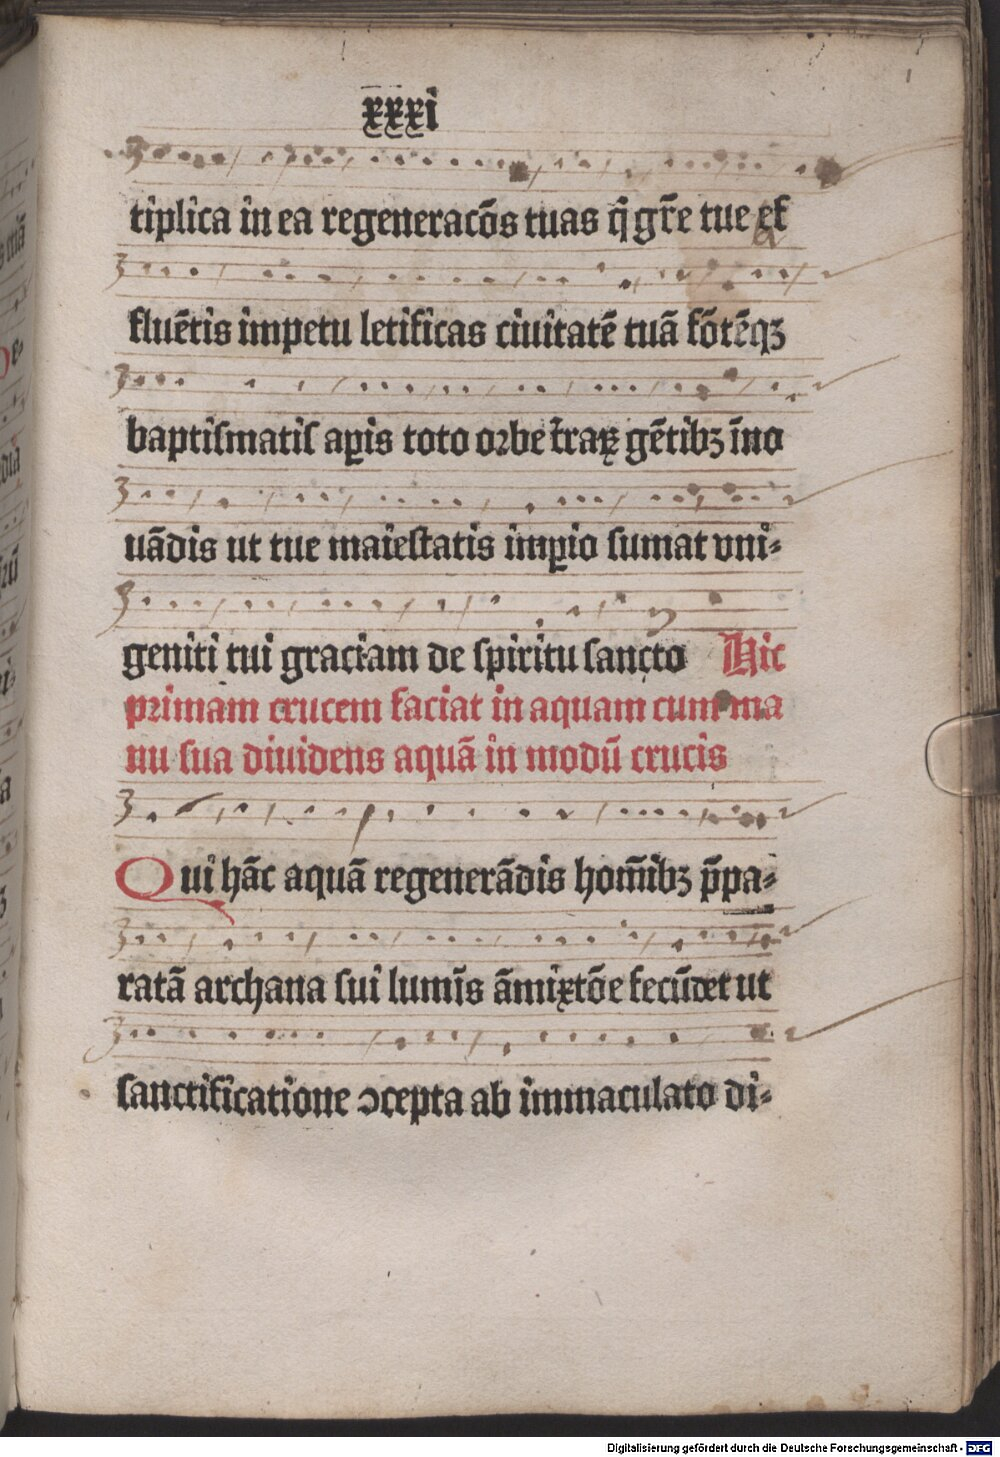 xxxi
tiplica in ea regeneracōs tuas q̄ gr̄e tue ef
fluētis impetu letificas ciuitatē tuā fōtēqꝫ
baptiſmatiſ aꝑis toto orbe t̄raꝝ gētibꝫ īno
uādis ut tue maieſtatis imꝑio ſumat vni⸗
geniti tui graciam de ſpiritu ſancto Hic
primam crucem faciat in aquam cum ma
nu ſua diuidens aquā in modū crucis
Qui hāc aquā regenerādis hom̄ibꝫ p̄pa⸗
ratā archana ſui lumīs āmixtōe fecūdet ut
ſanctificatione ↄcepta ab immaculato di⸗
Digitalisierung gefördert durch die Deutsche Forschungsgemeinschaft - DFG